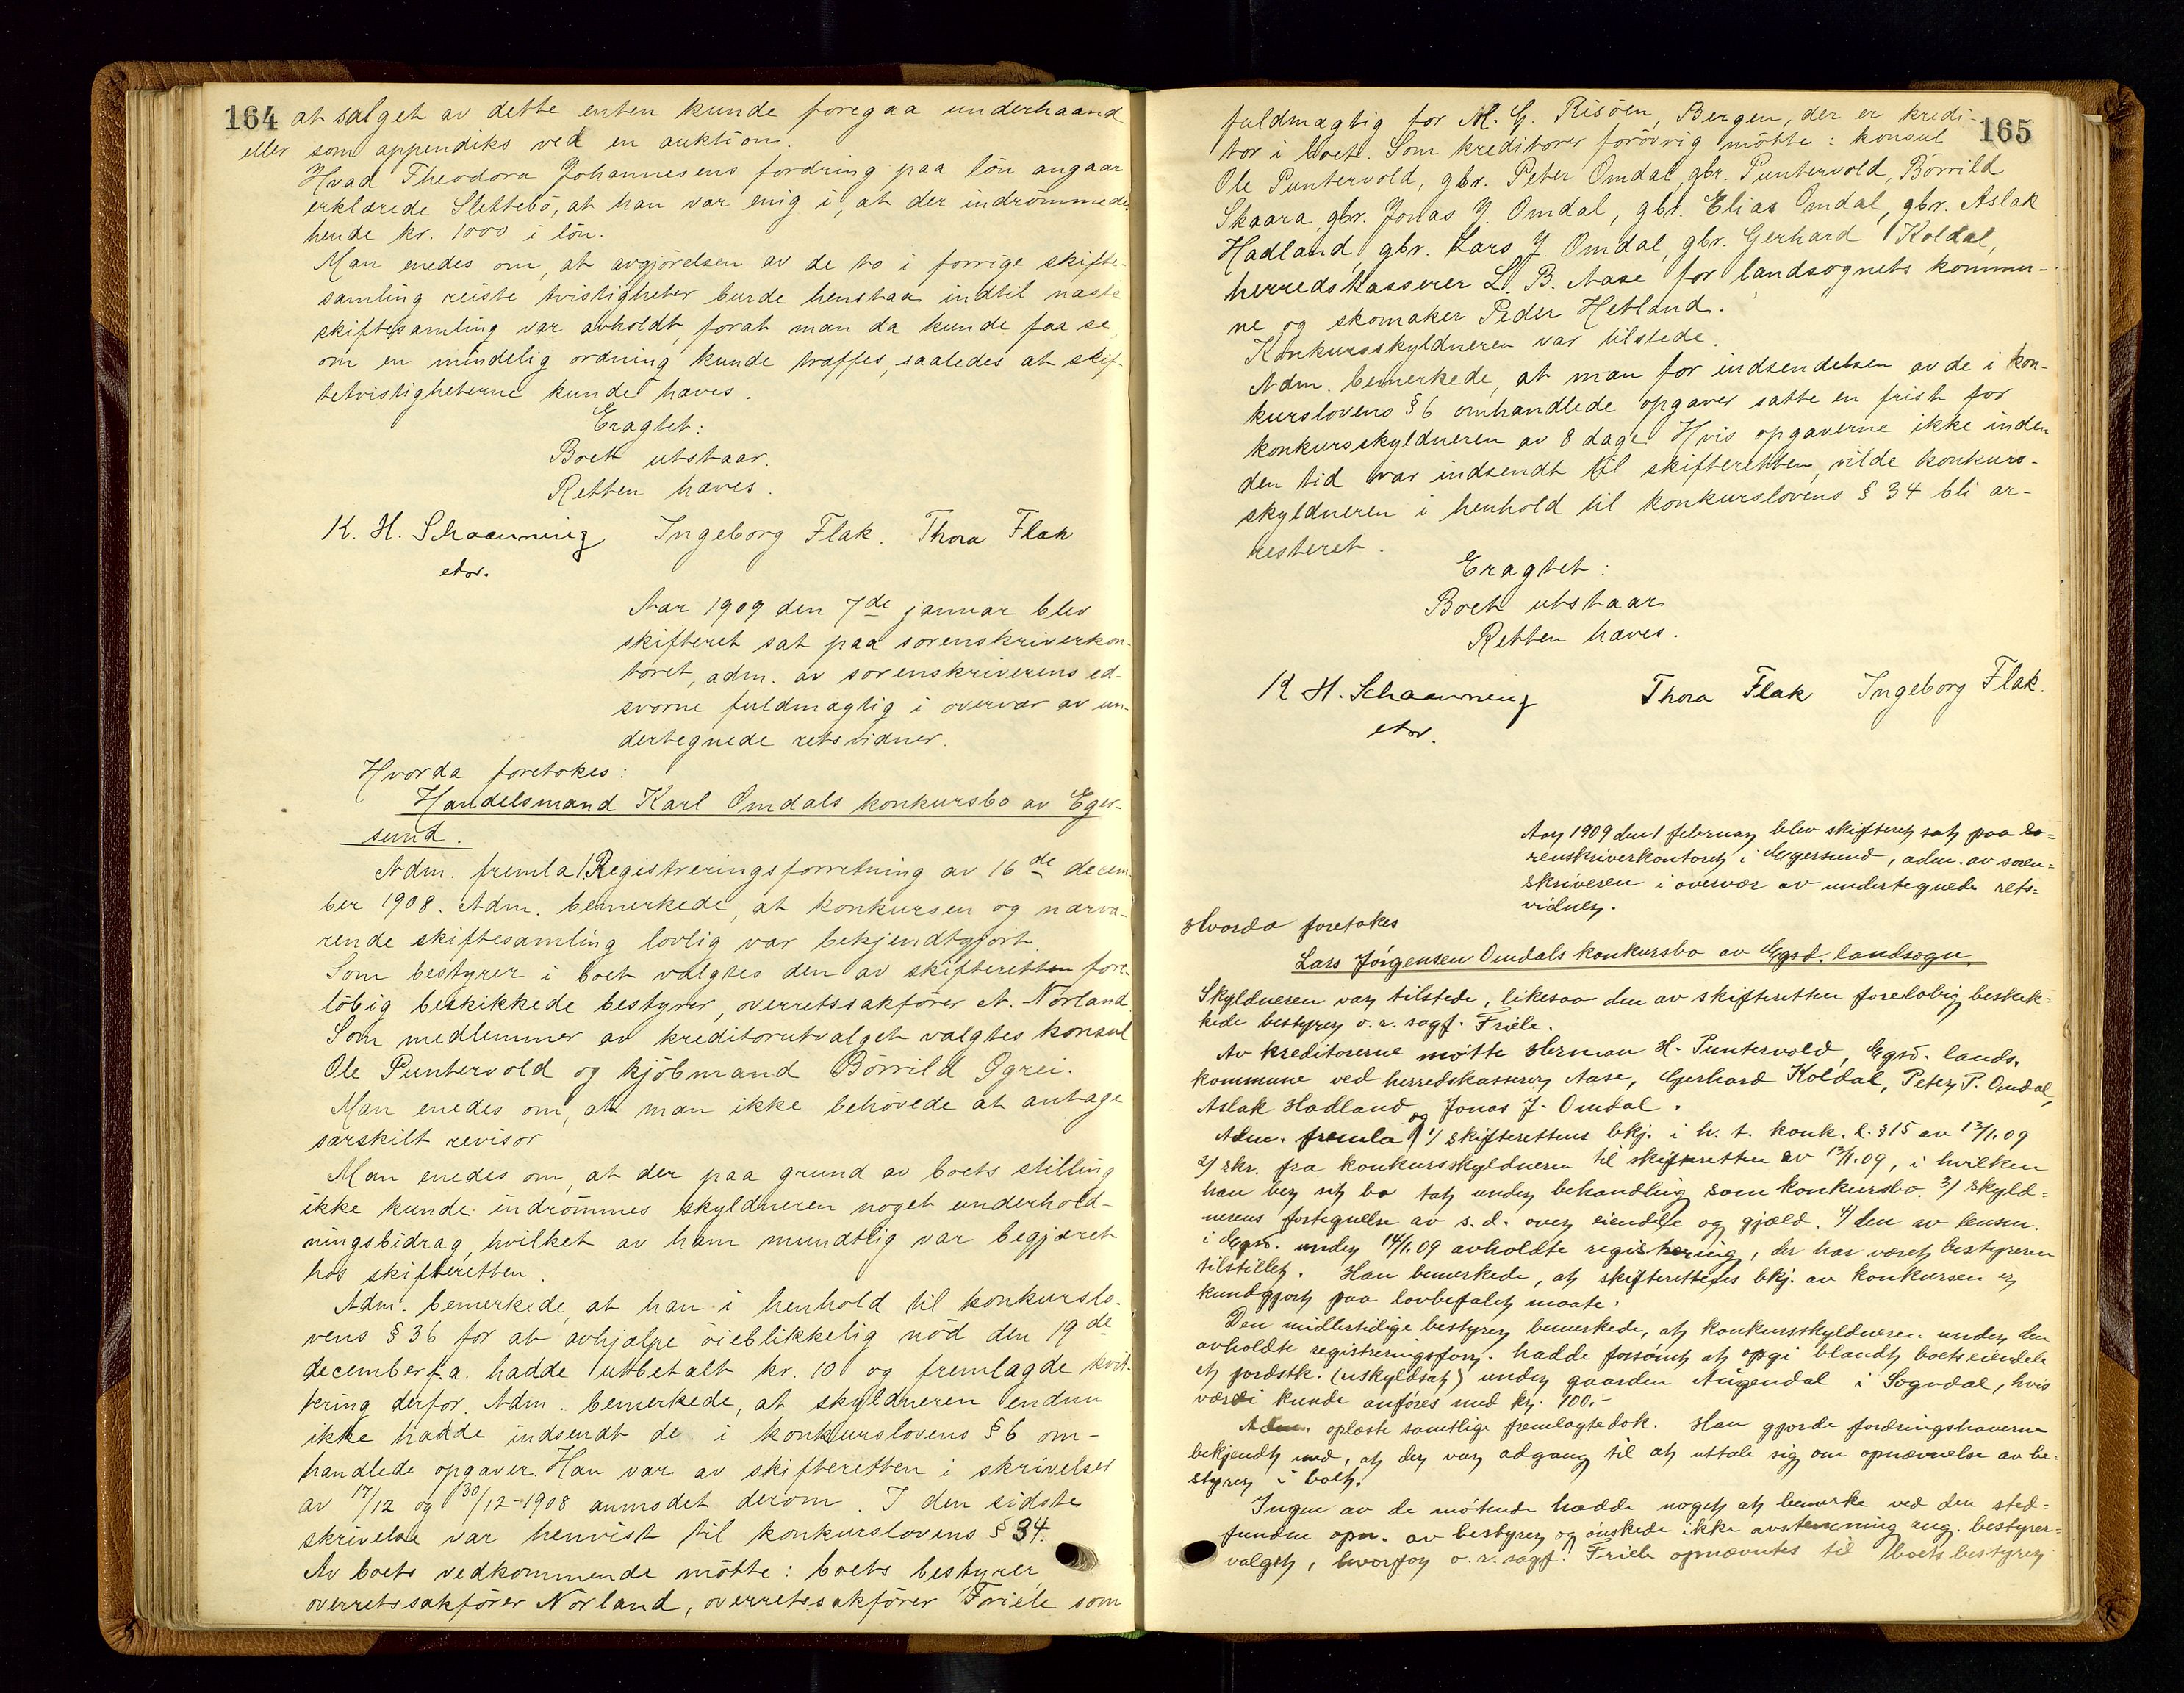 164 at salget av dette enten kunde foregaa underhaand
eller som appendiks ved en auktion.
Hvad Theodora Johannesens fordring paa lön angaar
erklærede Slettebö, at han var enig i, at der indrömmedes
hende kr. 1000 i lön.
Man enedes om, at avgjörelsen av de to i forrige skifte-
samling reiste tvistigheter burde henstaa indtil næste
skiftesamling var avholdt, forat man da kunde faa se
om en mindelig ordning kunde træffes, saaledes at skif-
tetvistigheterne kunde hæves.
Eragtet:
Boet utstaar.
Retten hæves.
K. H. Schaanning Ingeborg Flak. Thora Flak
edsv.
Aar 1909 den 7de januar blev
skifteret sat paa sorenskriverkon-
toret, adm. av sorenskriverens ed-
svorne fuldmægtig i overvær av un-
dertegnede retsvidner.
Hvorda foretokes:
Handelsmand Karl Omdals konkursbo av Eger-
sund.
Adm. fremla 1 Registreringsforretning av 16de decem-
ber 1908. Adm. bemerkede, at konkursen og nærvæ-
rende skiftesamling lovlig var bekjendtgjort.
Som bestyrer i boet valgtes den av skifteretten fore-
löbig beskikkede bestyrer, overretssakförer A. Nörland.
Som medlemmer av kreditorutvalget valgtes konsul
Ole Puntervold og kjöbmand Börrild Ogrei.
Man enedes om, at man ikke behövede at antage
særskilt revisor
Man enedes om, at der paa grund av boets stilling
ikke kunde indrömmes skyldneren noget underhold-
ningsbidrag, hvilket av ham mundtlig var begjæret
hos skifteretten.
Adm. bemerkede, at han i henhold til konkurslo-
vens § 36 for at avhjælpe öieblikkelig nöd den 19de
december f.a. hadde utbetalt kr. 10 og fremlagde kvit-
tering derfor. Adm. bemerkede, at skyldneren endnu
ikke hadde indsendt de i konkurslovens § 6 om-
handlede opgaver. Han var av skifteretten i skrivelser
av 17/12 og 30/12-1908 anmodet derom. I den sidste
skrivelse var henvist til konkurslovens § 34.
Av boets vedkommende mötte: boets bestyrer,
overretssakförer Nörland, overretssakförer Friele som
165
fuldmægtig for M. G. Risöen, Bergen, der er kredi-
tor i boet. Som kreditorer forövrig mötte: konsul
Ole Puntervold, gbr. Peter Omdal, gbr. Puntervold, Börrild
Skaara, gbr. Jonas J. Omdal, gbr. Elias Omdal, gbr. Aslak
Hadland, gbr. Lars J. Omdal, gbr. Gerhard Koldal,
herredskasserer L. B. Aase for landsognets kommu-
ne og skomaker Peder Hetland.
Konkursskyldneren var tilstede.
Adm. bemerkede, at man for indsendelsen av de i kon-
kurslovens § 6 omhandlede opgaver satte en frist for
konkursskyldneren av 8 dage. Hvis opgaverne ikke inden
den tid var indsendt til skifteretten, vilde konkurs-
skyldneren i henhold til konkurslovens § 34 bli ar-
resteret.
Eragtet:
Boet utstaar
Retten hæves.
K H. Schaanning Thora Flak Ingeborg Flak.
edsv.
Aar 1909 den 1 februar blev skifteret sat paa so-
renskriverkontoret i Egersund, adm. av soren-
skriveren i overvær av undertegnede rets-
vidner.
Hvorda foretokes
Lars Jörgensen Omdals konkursbo av Egsd. landsogn.
Skyldneren var tilstede, likesaa den av skifteretten forelöbig beskik-
kede bestyrer o.r. sagf. Friele.
Av kreditorerne mötte Herman H. Puntervold, Egsd. lands-
kommune ved herredskasserer Aase, Gerhard Koldal, Peter P. Omdal,
Aslak Hadland og Jonas J. Omdal.
Adm. fremla 1/ skifterettens bkj. i h. t. konk. l. § 15 av 13/1.09
2/ skr. fra konkursskyldneren til skifteretten av 13/1.09, i hvilken
han ber sit bo tat under behandling som konkursbo. 3/ skyld-
nerens fortegnelse av s. d. over eiendele og gjæld. 4/ den av lensm.
i Egsd. under 14/1.09 avholdte registrering, der har været bestyreren
tilstillet. Han bemerkede, at skifterettens bkj. av konkursen er
kundgjort paa lovbefalet maate.
Den midlertidige bestyrer bemerkede, at konkursskyldneren under den
avholdte registreringsforr. hadde forsömt at opgi blandt boets eiendele
et jordstk. (uskyldsat) under gaarden Aagendal i Sogndal, hvis
værdi kunde anföres med kr. 100.-
Adm. oplæste samtlige fremlagte dok. Han gjorde fordringshaverne
bekjendt med, at der var adgang til at uttale sig om opnævnelse av be-
styrer i boet.
Ingen av de mötende hadde noget at bemerke ved den sted-
fundne opn. av bestyrer og önskede ikke avstemning ang. bestyrer-
valget, hvorfor o.r. sagf. Friele opnævntes til boets bestyrer